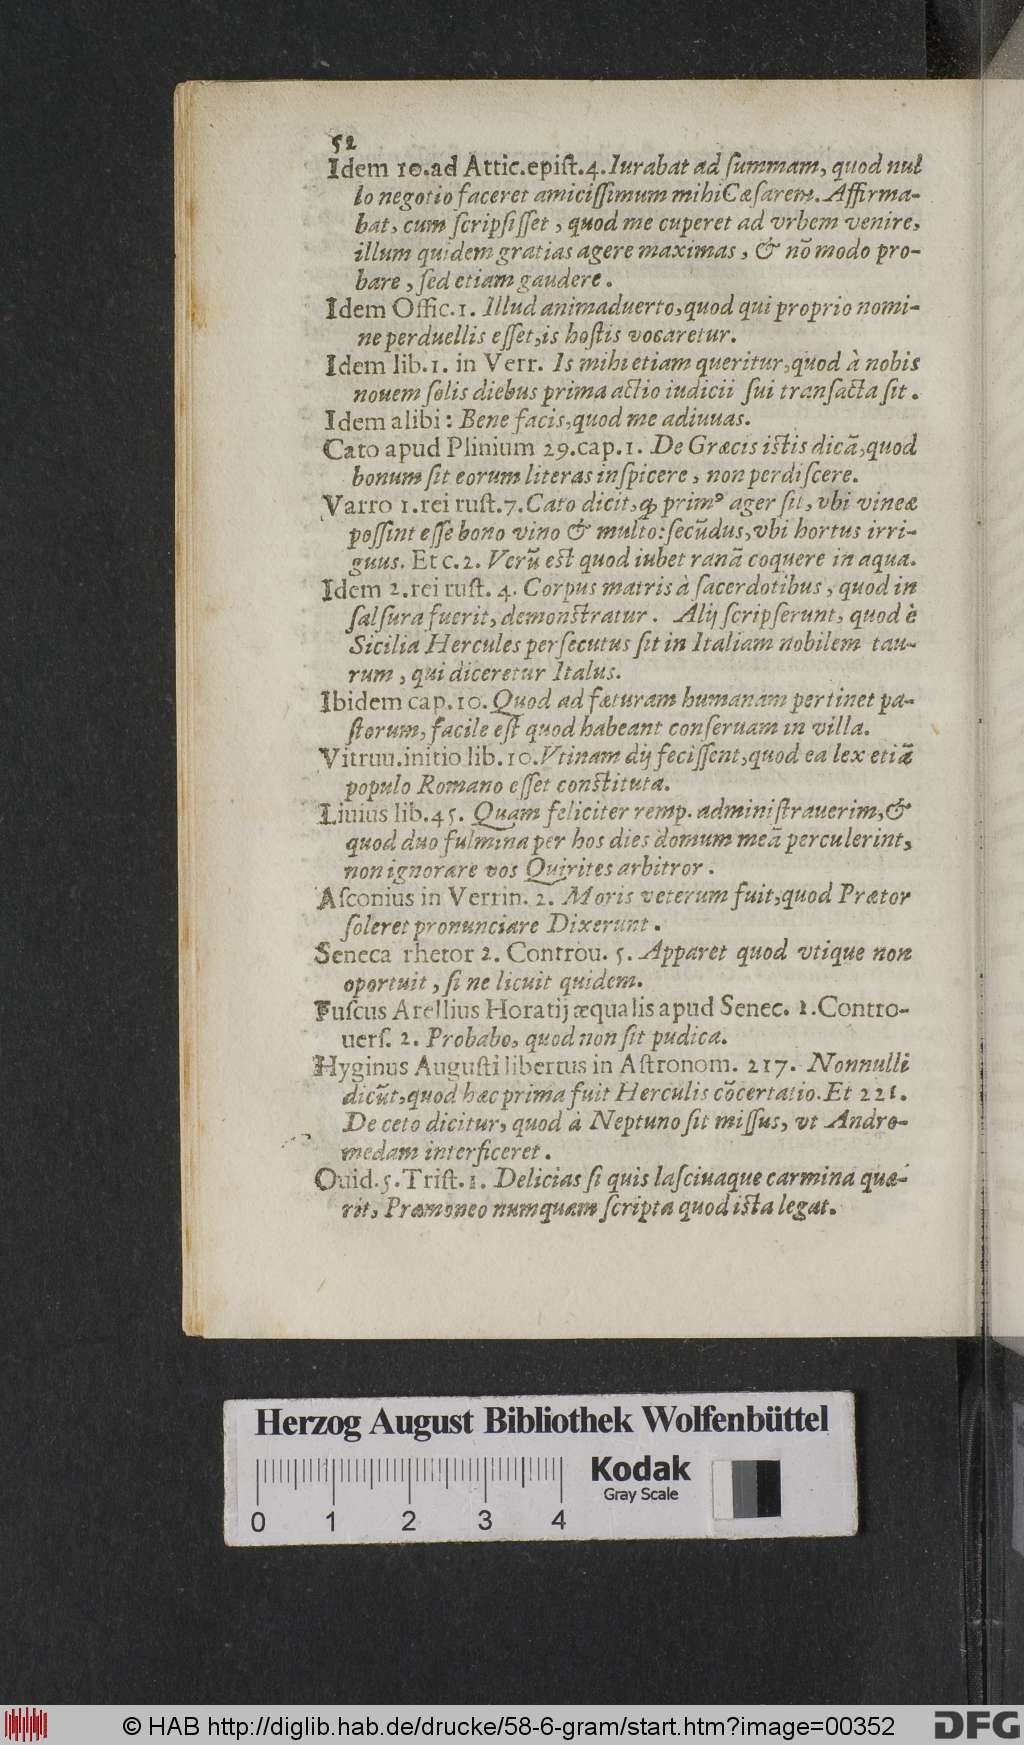 52
Idem 10.ad Attic.epiſt.4.Iurabat ad ſummam, quod nul
lo negotio faceret amiciſſimum mihi Cæſarem. Affirma-
bat, cum ſcripſiſſet, quod me cuperet ad vrbem venire,
illum quidem gratias agere maximas, & nõ modo pro-
bare, ſed etiam gaudere.
Idem Offic.1. Illud animaduerto,quod qui proprio nomi-
ne perduellis eſſet,is hoſtis vocaretur.
Idem lib.1. in Verr. Is mihi etiam queritur,quod à nobis
nouem ſolis diebus prima actio iudicii ſui tranſacta ſit.
Idem alibi: Bene facis,quod me adiuuas.
Cato apud Plinium 29.cap.1. De Græcis iſtis dicã,quod
bonum ſit eorum literas inſpicere, non perdiſcere.
Varro 1.rei ruſt.7.Cato dicit,ꝙ primꝰ ager ſit, vbi vineæ
poſſint eſſe bono vino & multo: ſecũdus,vbi hortus irri-
guus. Et c.2. Verũ eſt quod iubet ranã coquere in aqua.
Idem 2.rei ruſt. 4. Corpus matris à ſacerdotibus, quod in
ſalſura fuerit, demonſtratur. Alij ſcripſerunt, quod è
Sicilia Hercules perſecutus ſit in Italiam nobilem tau-
rum, qui diceretur Italus.
Ibidem cap.10. Quod ad fæturam humanam pertinet pa-
ſtorum, facile eſt quod habeant conſeruam in villa.
Vitruu.initio lib.10.Vtinam dij feciſſent,quod ea lex etiã
populo Romano eſſet conſtituta.
Liuius lib.45. Quam feliciter remp. adminiſtrauerim,&
quod duo fulmina per hos dies domum meã perculerint,
non ignorare vos Quirites arbitror.
Aſconius in Verrin. 2. Moris veterum fuit,quod Prætor
ſoleret pronunciare Dixerunt.
Seneca rhetor 2. Controu. 5. Apparet quod vtique non
oportuit, ſi ne licuit quidem.
Fuſcus Arellius Horatij æqualis apud Senec. 1.Contro-
uerſ. 2. Probabo, quod non ſit pudica.
Hyginus Auguſti libertus in Aſtronom. 217. Nonnulli
dicũt,quod hæc prima fuit Herculis cõcertatio. Et 221.
De ceto dicitur, quod à Neptuno ſit miſſus, vt Andro-
medam interficeret.
Ouid.5.Triſt.1. Delicias ſi quis laſciuaque carmina quæ-
rit, Præmoneo numquam ſcripta quod iſta legat.
Herzog August Bibliothek Wolfenbüttel
Kodak
Gray Scale
0 1 2 3 4
© HAB http://diglib.hab.de/drucke/58-6-gram/start.htm?image=00352
DFG